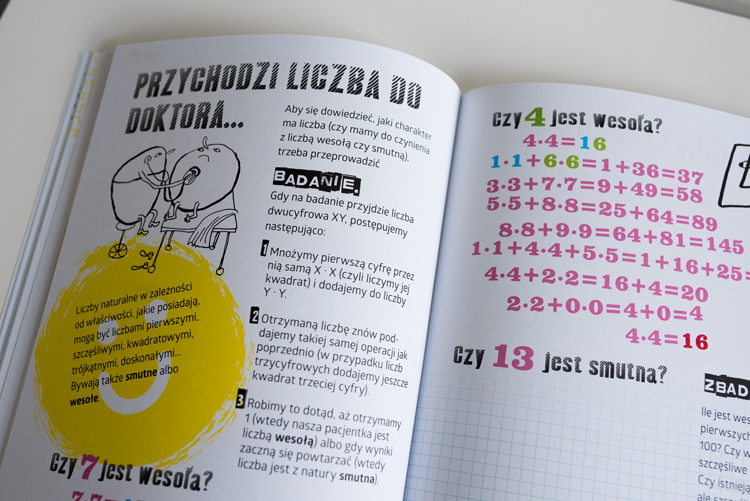 PRZYCHODZI LICZBA DO
DOKTORA...
Aby się dowiedzieć, jaki charakter
ma liczba (czy mamy do czynienia
z liczbą wesołą czy smutną),
trzeba przeprowadzić
BADANIE.
Gdy na badanie przyjdzie liczba
dwucyfrowa XY, postępujemy
następująco:
1 Mnożymy pierwszą cyfrę przez
nią samą X · X (czyli liczymy jej
kwadrat) i dodajemy do liczby
Y · Y.
2 Otrzymaną liczbę znów pod-
dajemy takiej samej operacji jak
poprzednio (w przypadku liczb
trzycyfrowych dodajemy jeszcze
kwadrat trzeciej cyfry).
3 Robimy to dotąd, aż otrzymamy
1 (wtedy nasza pacjentka jest
liczbą wesołą) albo gdy wyniki
zaczną się powtarzać (wtedy
liczba jest z natury smutna).
Liczby naturalne w zależności
od właściwości, jakie posiadają,
mogą być liczbami pierwszymi,
szczęśliwymi, kwadratowymi,
trójkątnymi, doskonałymi...
Bywają także smutne albo
wesołe.
Czy 7 jest wesoła?
Czy 4 jest wesoła?
4·4=16
1·1+6·6=1+36=37
3·3+7·7=9+49=58
5·5+8·8=25+64=89
8·8+9·9=64+81=145
1·1+4·4+5·5=1+16+25=
4·4+2·2=16+4=20
2·2+0·0=4+0=4
4·4=16
Czy 13 jest smutna?
ZBAD
Ile jest we
pierwszych
100? Czy w
Czy istnieją